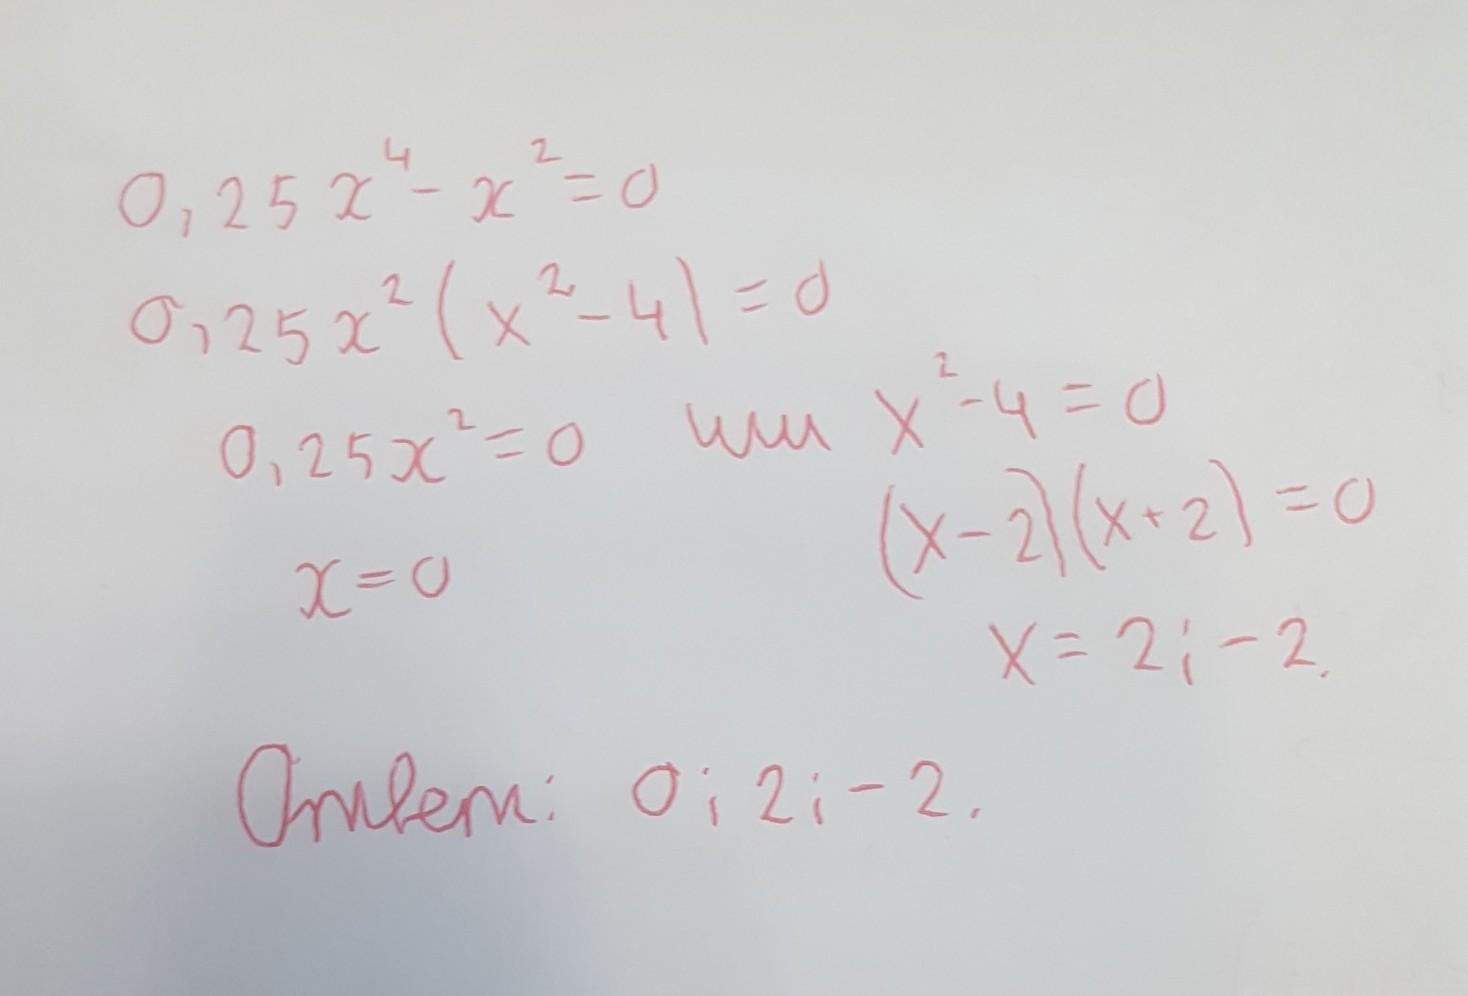 0,25x⁴ - x² = 0
0,25x² (x² - 4) = 0
0,25x² = 0 или x² - 4 = 0
(x - 2)(x + 2) = 0
x = 0
x = 2; -2.
Ответ: 0; 2; -2.